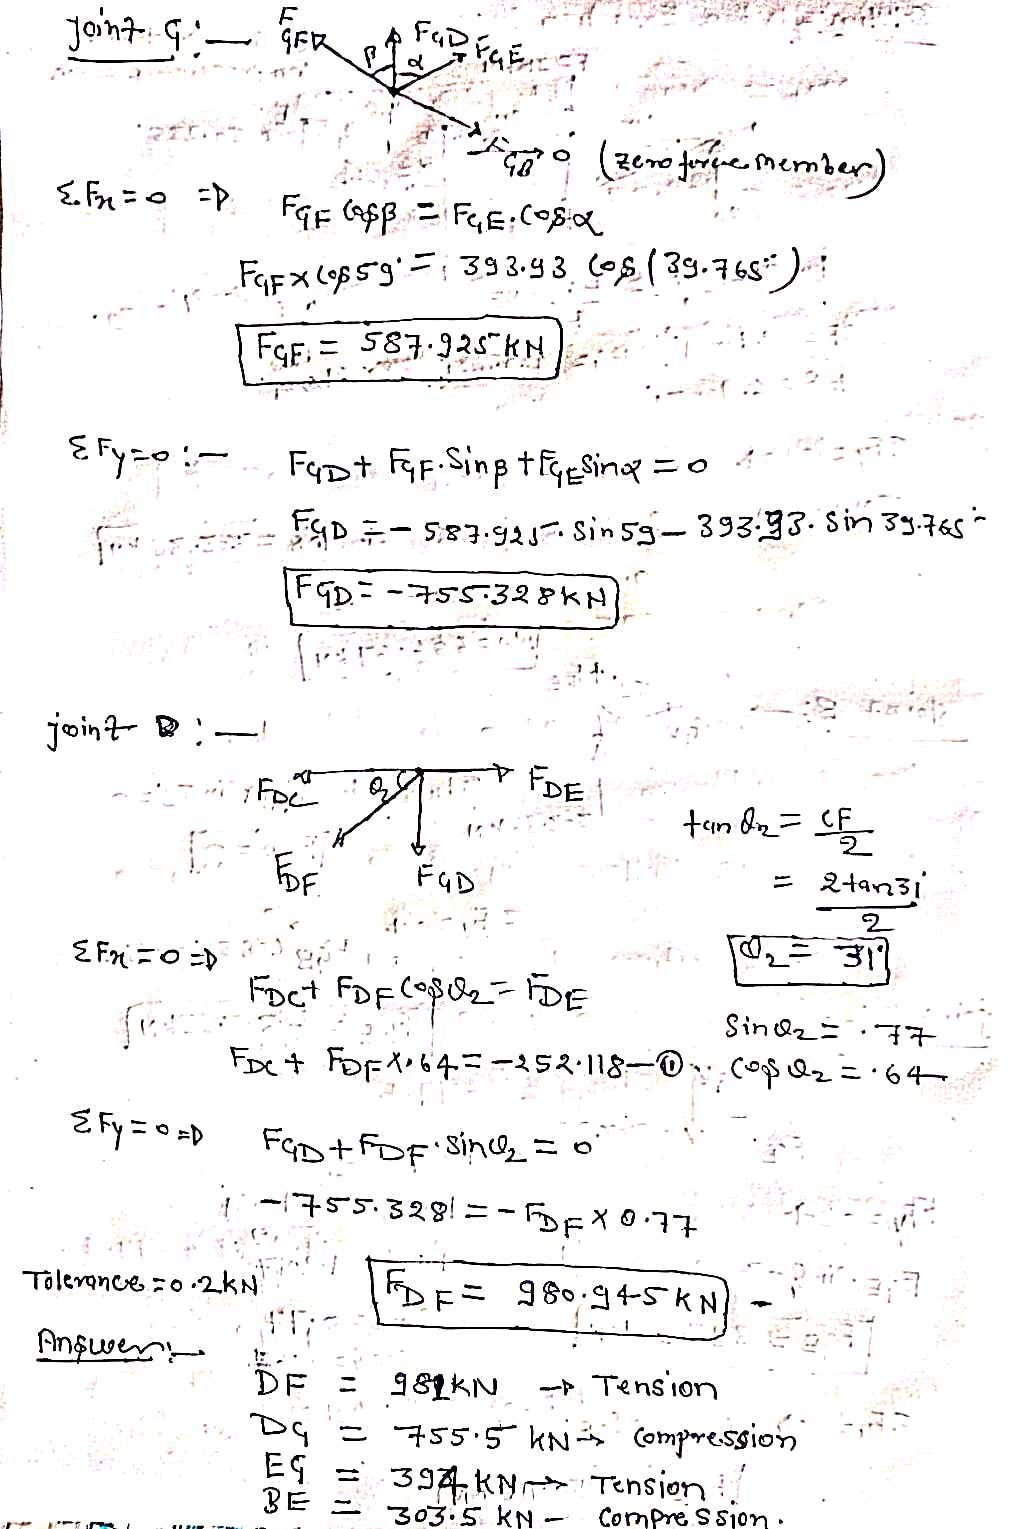 joint G :—
F GF β F GD α F GE
GB 0 (zero force member)
ΣFx = 0 ⇒ F GF cosβ = F GE. cosα
F GF × cos 59° = 393.93 cos (39.765°)
F GF = 587.925 KN
ΣFy = 0 :— F GD + F GF. Sinβ + F GE Sinα = 0
F GD = - 587.925. Sin 59 - 393.93. Sin 39.765°
F GD = -755.328 KN
joint D :—
F DC θ2 F DE
F DF F GD
tan θ2 = CF / 2
= 2 tan 31 / 2
θ2 = 31°
ΣFx = 0 ⇒
F DC + F DF cos θ2 = F DE
Sin θ2 = .77
F DC + F DF × .64 = -252.118 — ⑪
cos θ2 = .64
ΣFy = 0 ⇒ F GD + F DF. sin θ2 = 0
-755.328 = - F DF × 0.77
Tolerance = 0.2 KN
F DF = 980.945 KN
Answer :—
DF = 981 KN → Tension
DG = 755.5 KN → compression
EG = 394 KN → Tension
BE = 303.5 KN — compression.